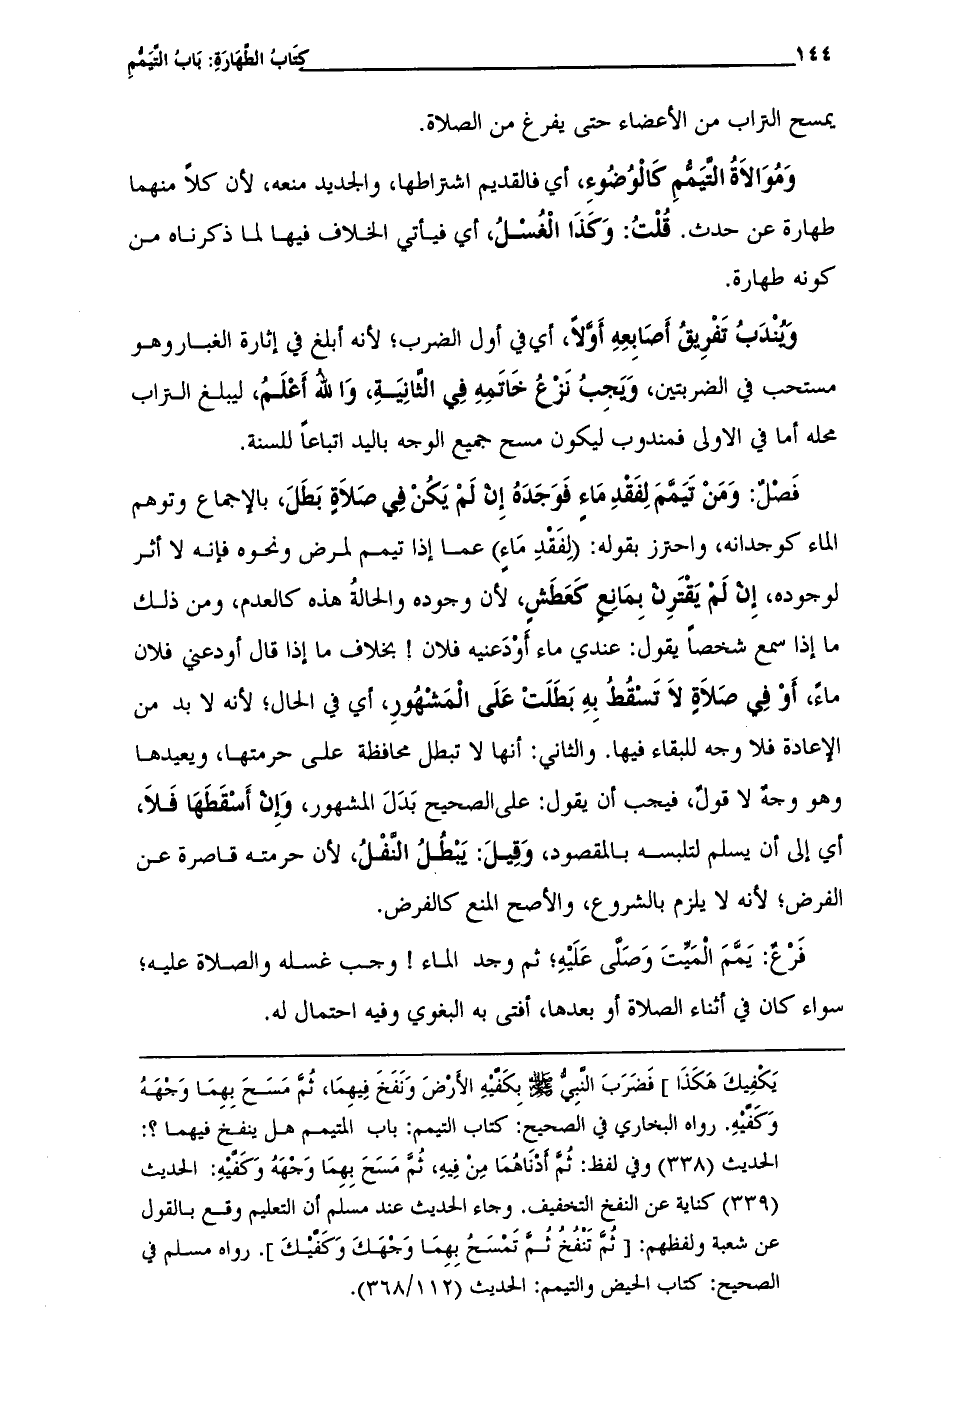 ١٤٤ كِتَابُ الطَّهَارَةِ: بَابُ التَّيَمُّمِ
يمسح التراب من الأعضاء حتى يفرغ من الصلاة.
وَمُوَالاَةُ التَّيَمُّمِ كَالْوُضُوءِ، أي فالقديم اشتراطها، والجديد منعه، لأن كلاً منهما
طهارة عن حدث. قُلْتُ: وَكَذَا الْغُسْلُ، أي فيأتي الخلاف فيها لما ذكرناه من
كونه طهارة.
وَيُنْدَبُ تَفْرِيقُ أَصَابِعِهِ أَوَّلاً، أي في أول الضرب؛ لأنه أبلغ في إثارة الغبار وهو
مستحب في الضربتين، وَيَجِبُ نَزْعُ خَاتَمِهِ فِي الثَّانِيَةِ، وَاللهُ أَعْلَمُ، ليبلغ التراب
محله أما في الاولى فمندوب ليكون مسح جميع الوجه باليد اتباعاً للسنة.
فَصْلٌ: وَمَنْ تَيَمَّمَ لِفَقْدِ مَاءٍ فَوَجَدَهُ إِنْ لَمْ يَكُنْ فِي صَلاَةٍ بَطَلَ، بالإجماع وتوهم
الماء كوجدانه، واحترز بقوله: (لِفَقْدِ مَاءٍ) عما إذا تيمم لمرض ونحوه فإنه لا أثر
لوجوده، إِنْ لَمْ يَقْتَرِنْ بِمَانِعٍ كَعَطَشٍ، لأن وجوده والحالةُ هذه كالعدم، ومن ذلك
ما إذا سمع شخصاً يقول: عندي ماء أَوْدَعنيه فلان ! بخلاف ما إذا قال أودعني فلان
ماءً، أَوْ فِي صَلاَةٍ لاَ تَسْقُطُ بِهِ بَطَلَتْ عَلَى الْمَشْهُورِ، أي في الحال؛ لأنه لا بد من
الإعادة فلا وجه للبقاء فيها. والثاني: أنها لا تبطل محافظة على حرمتها، ويعيدها
وهو وجهٌ لا قولٌ، فيجب أن يقول: على الصحيح بَدَلَ المشهور، وَإِنْ أَسْقَطَهَا فَلاَ،
أي إلى أن يسلم لتلبسه بالمقصود، وَقِيلَ: يَبْطُلُ النَّفْلُ، لأن حرمته قاصرة عن
الفرض؛ لأنه لا يلزم بالشروع، والأصح المنع كالفرض.
فَرْعٌ: يَمَّمَ الْمَيِّتَ وَصَلَّى عَلَيْهِ؛ ثم وجد الماء ! وجب غسله والصلاة عليه؛
سواء كان في أثناء الصلاة أو بعدها، أفتى به البغوي وفيه احتمال له.
يَكْفِيكَ هَكَذَا ] فَضَرَبَ النَّبِيُّ ﷺ بِكَفَّيْهِ الأَرْضَ وَنَفَخَ فِيهِمَا، ثُمَّ مَسَحَ بِهِمَا وَجْهَهُ
وَكَفَّيْهِ. رواه البخاري في الصحيح: كتاب التيمم: باب المتيمم هل ينفخ فيهما ؟:
الحديث (٣٣٨) وفي لفظ: ثُمَّ أَدْنَاهُمَا مِنْ فِيهِ، ثُمَّ مَسَحَ بِهِمَا وَجْهَهُ وَكَفَّيْهِ: الحديث
(٣٣٩) كناية عن النفخ التخفيف. وجاء الحديث عند مسلم أن التعليم وقع بالقول
عن شعبة ولفظهم: [ ثُمَّ تَنْفُخُ ثُمَّ تَمْسَحُ بِهِمَا وَجْهَكَ وَكَفَّيْكَ ]. رواه مسلم في
الصحيح: كتاب الحيض والتيمم: الحديث (٣٦٨/١١٢).